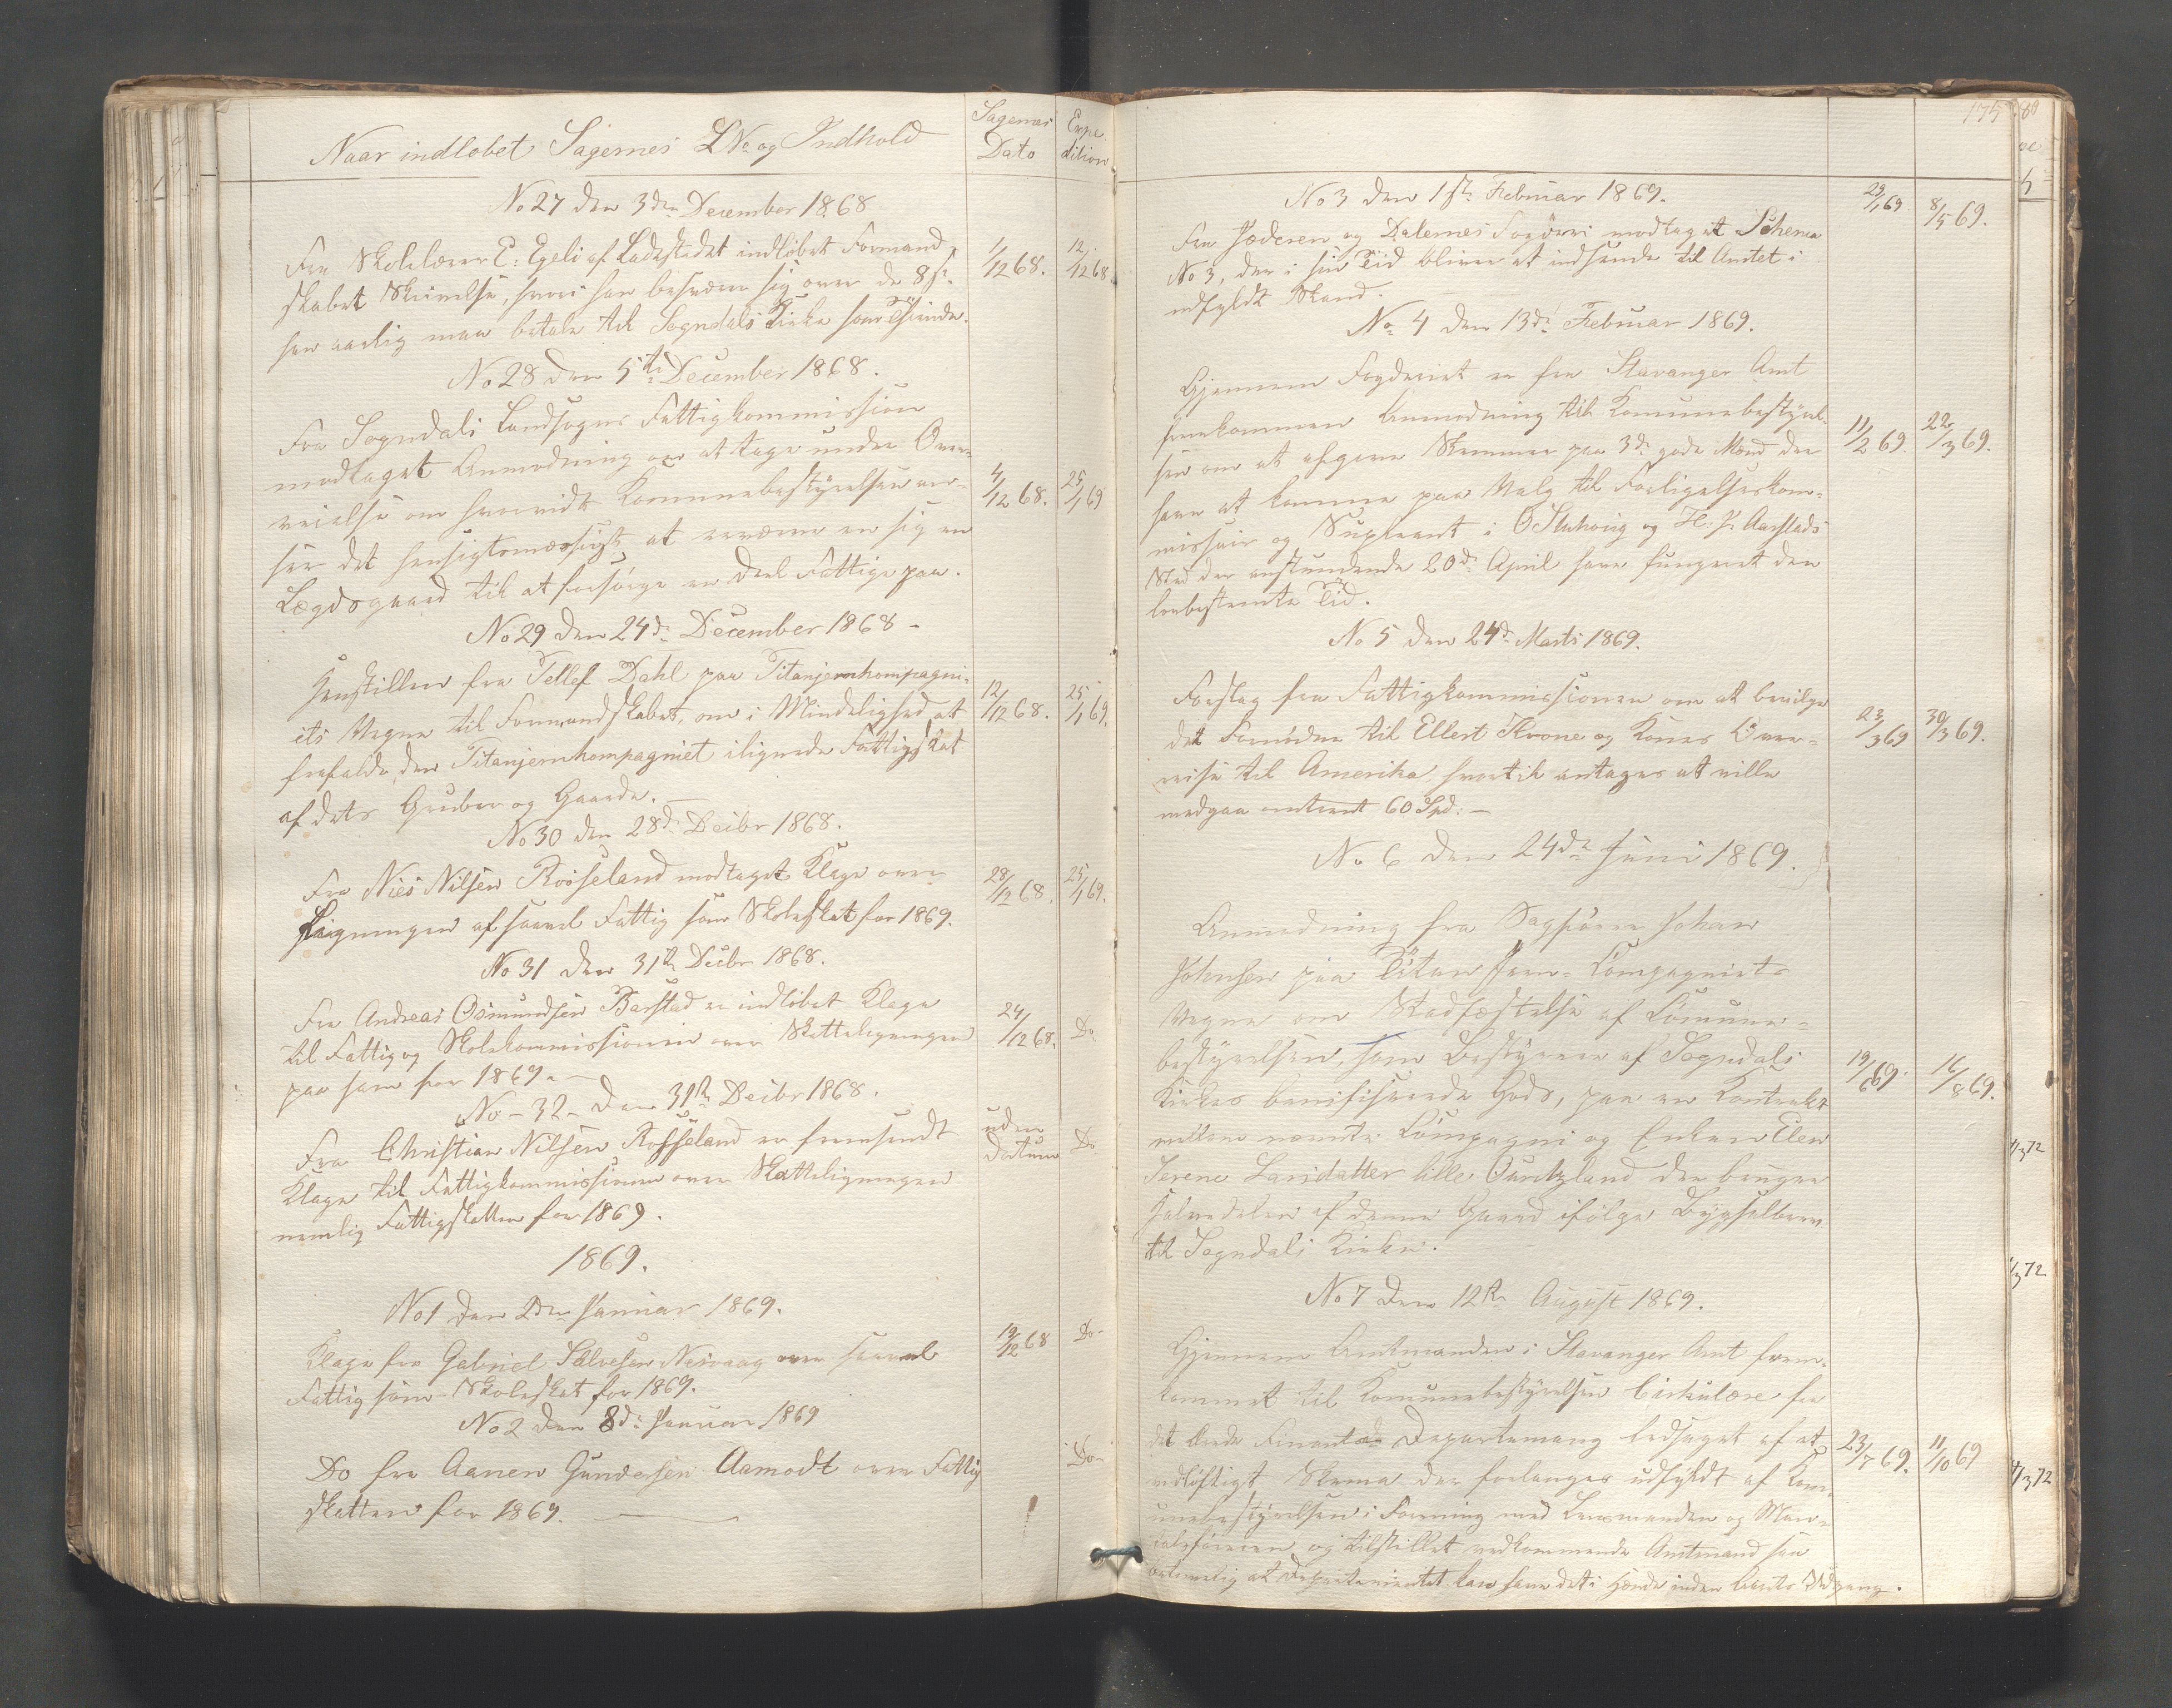 Naar indløbet Sagernes LNo og Indhold
Sagernes Dato
Expedition
No 27 den 3die December 1868
Fra Skolelærer E: Egeli af Ladestedet indløbet Formand-
skabet Skrivelse, hvori han besværer sig over de 8 s.
han aarlig maa betale til Sogndals Kirke som Tiende.
1/12 68. 12/12 68
No 28 den 5te December 1868.
Fra Sogndals Landsogns Fattigkommission
modtaget Anmodning om at tage under Over-
veielse om hvorvidt Kommunebestyrelsen an-
ser det hensigtsmæssigt at erværve en sig en
Lægdsgaard til at forsørge en Deel Fattige paa.
4/12 68. 25/1 69
No 29 den 24de December 1868 -
Henstillen fra Tellef Dahl paa Titanjernkompagni-
ets Vegne til Formandskabet, om i Mindelighed at
frafalde den Titanjernkompagniet ilignede Fattigskat
af dets Gruber og Gaarde.
12/12 68. 25/1 69.
No 30 den 28de Decbr 1868.
Fra Niels Nilsen Rosseland modtaget Klage over
Ligningen af saavel Fattig som Skoleskat for 1869.
28/12 68. 25/1 69.
No 31 den 31te Decbr 1868.
Fra Andreas Osmundsen Barstad er indløbet Klage
til Fattig og Skolekommissionen over Skatteligningen
paa ham for 1869. -
24/12 68. Do
No - 32 - den 31te Decbr 1868.
Fra Christian Nilsen Rosseland er fremsendt
Klage til Fattigkommissionen over Skatteligningen
nemlig Fattigskatten for 1869.
uden Datum Do
1869.
No 1 den 2den Januar 1869.
Klage fra Gabriel Salvesen Nesvaag over saavel
Fattig som Skoleskat for 1869.
19/12 68 Do-
No 2 den 8de Januar 1869
Do fra Aanen Gundersen Aamodt over Fattig
skatten for 1869. -
Do-
175
No 3 den 1ste Februar 1869.
Fra Jæderen og Dalernes Fogderi modtaget Schema
No 3, der i sin Tid bliver at indsende til Amtet i
udfyldt Stand.
29/1 69 8/5 69.
No 4 den 13de Februar 1869.
Gjennem Fogderiet er fra Stavanger Amt
fremkommen Anmodning til Komunebestyrel-
sen om at afgive Stemmer paa 3de gode Mænd der
have at komme paa Valg til Forligelseskom-
missair og Supleant i O Stuhoug og H: P. Aarstads
Sted der anstundende 20de April have fungeret den
lovbestemte Tid.
11/2 69. 22/3 69.
No 5 den 24de Marts 1869.
Forslag fra Fattigkommissionen om at bevilge
det Fornødne til Ellert Krone og Kones Over-
reise til Amerika, hvortil antages at ville
medgaa omtrent 60 Spd: -
23/3 69 30/3 69.
No 6 den 24de Juni 1869.
Anmodning fra Sagfører Johan
Johnsen paa Titan Jern-Compagniets
Vegne om Stadfæstelse af Comune-
bestyrelsen, som Bestyrer af Sogndals
Kirkes benificerede Gods, paa en Kontrakt
mellem nævnte Compagni og Enken Elen
Serene Larsdatter lille Guritzland der bruger
Halvedelen af denne Gaard ifølge Bygselbrev
til Sogndals Kirke.
19/6 69. 16/8 69.
No 7 den 12te August 1869.
Gjennem Amtmanden i Stavanger Amt frem-
kommet til Komunebestyrelsen Cirkulære fra
det Departemang ledsaget af et
vidløftigt Skema der forlanges udfyldt af Kom-
unebestyrelsen i Forening med Lensmanden og Man-
talsføreren og tilstillet vedkommende Amtmand saa
betimelig at Departementet kan have det i Hænde inden Aarets Udgang.
23/7 69. 11/10 69
1/3 72
1/3 72
4/3 72